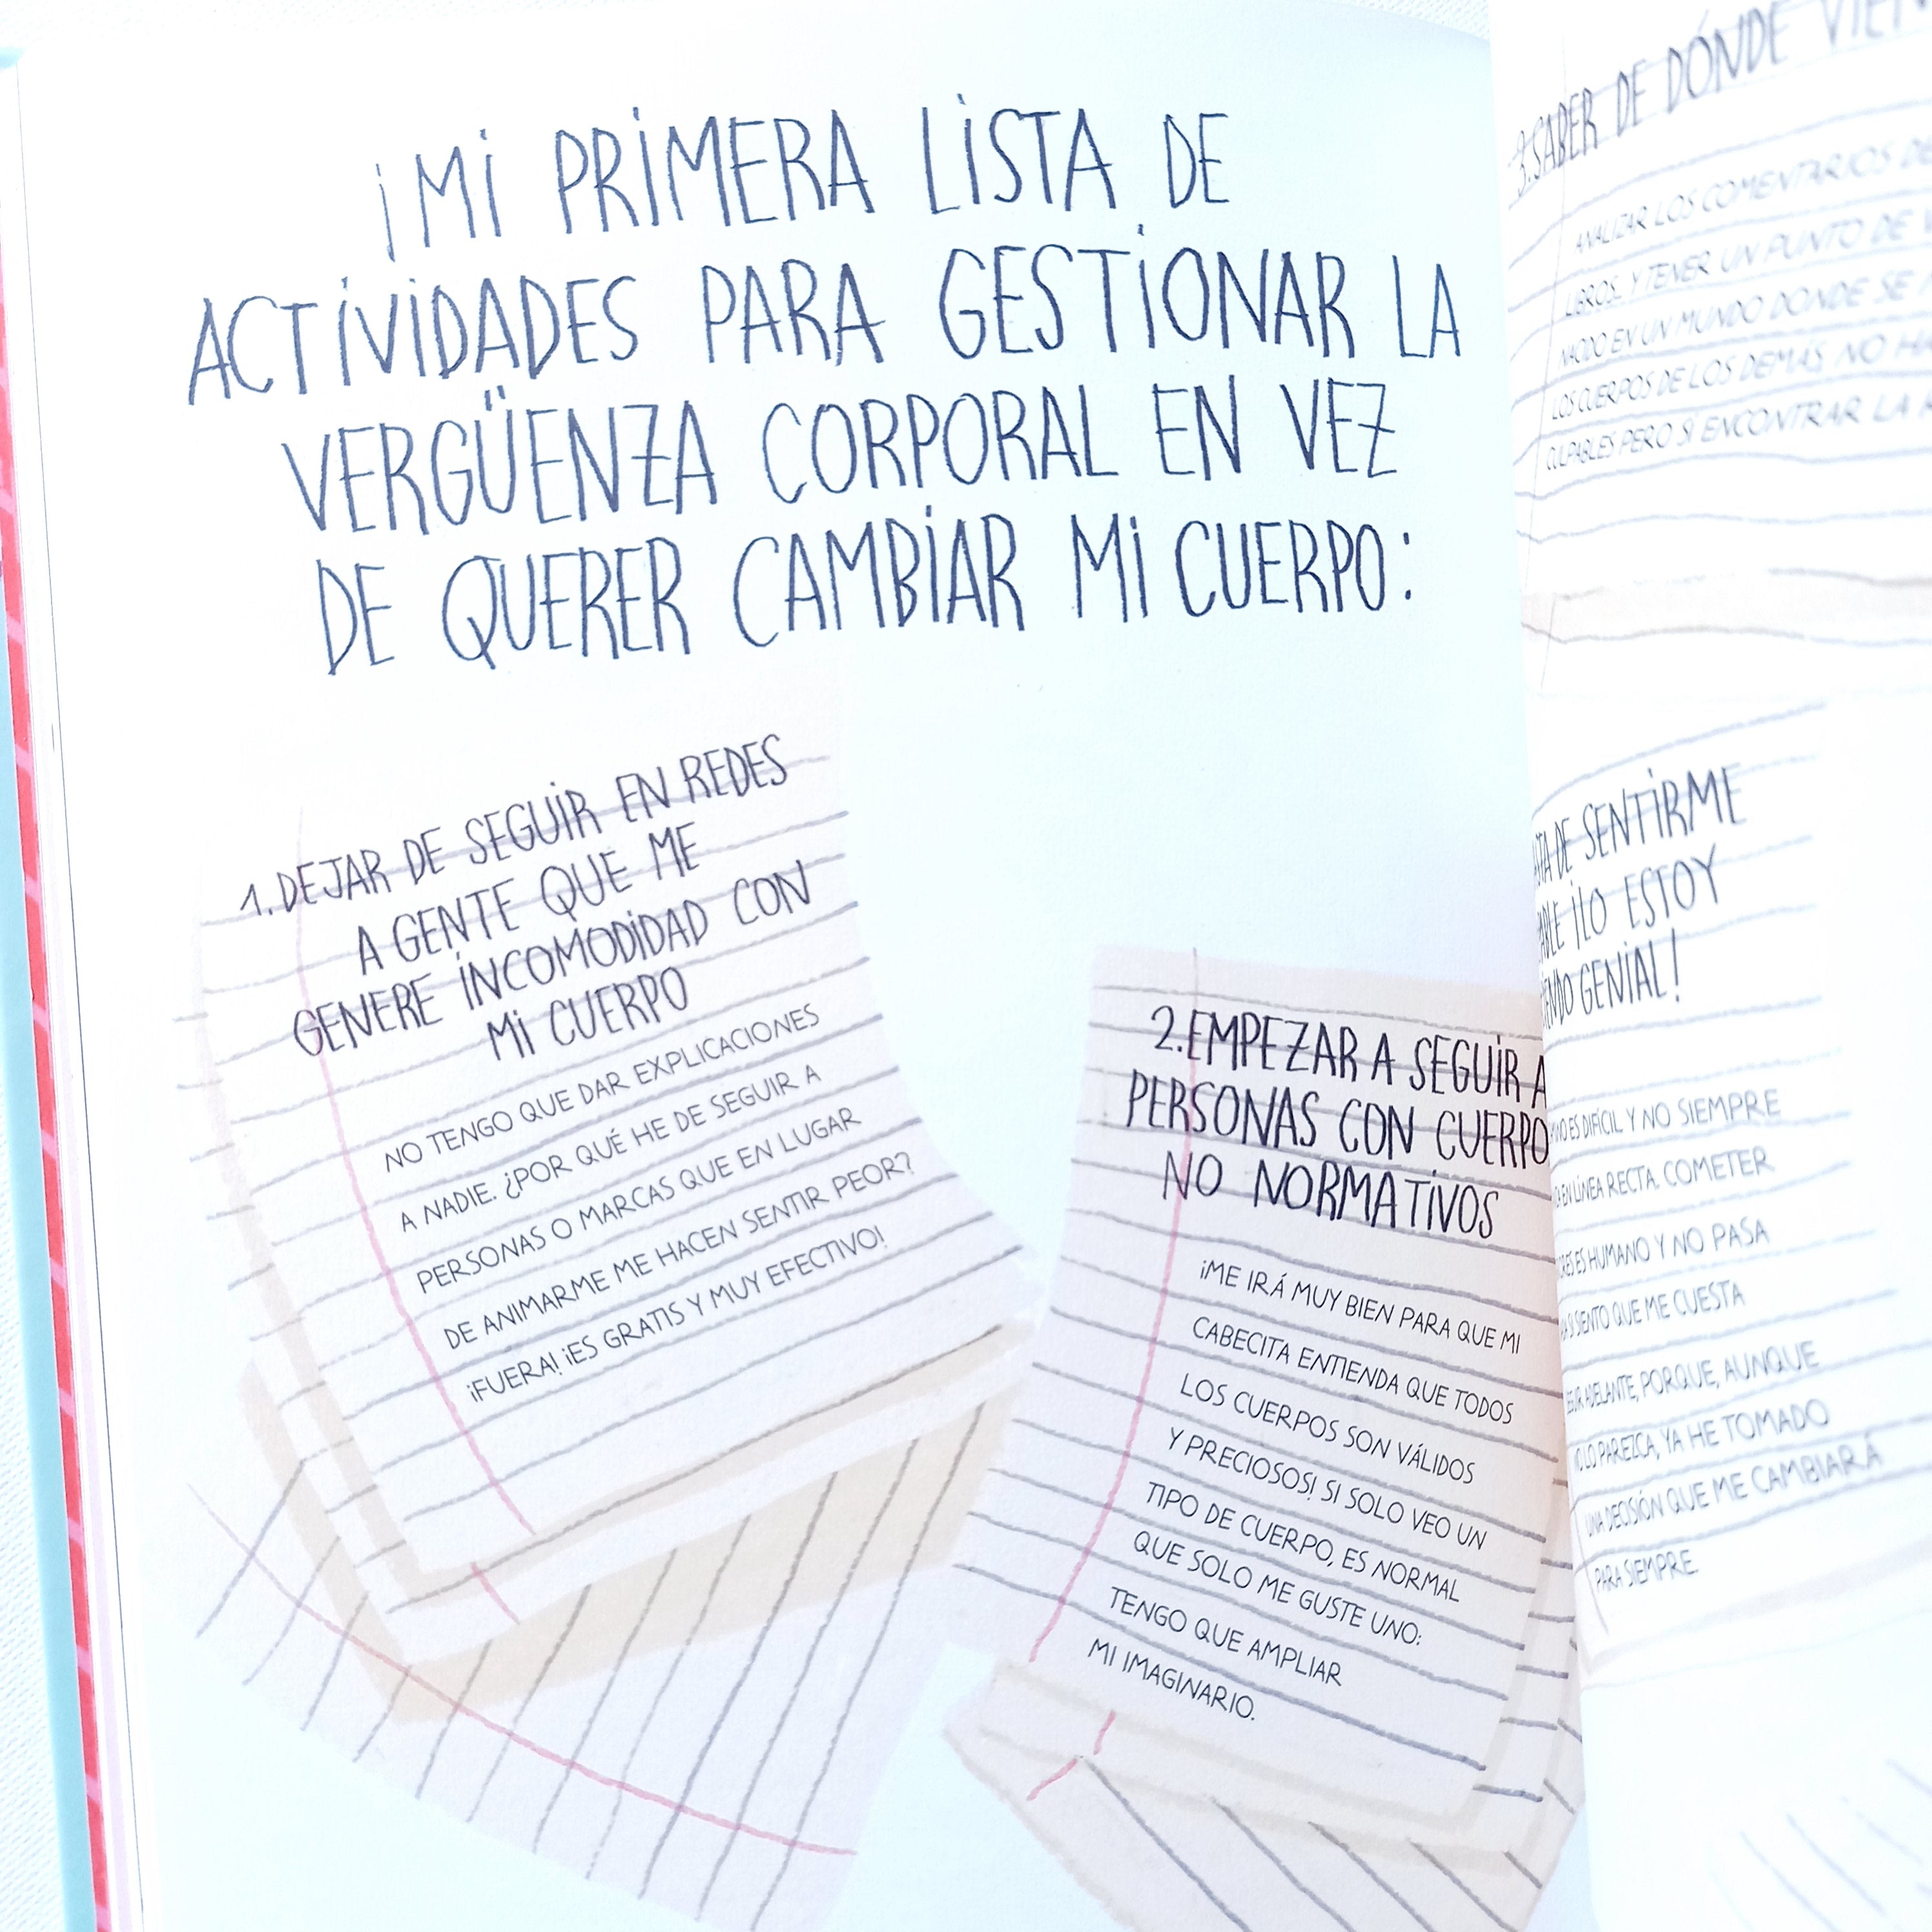 ¡MI PRIMERA LISTA DE
ACTIVIDADES PARA GESTIONAR LA
VERGÜENZA CORPORAL EN VEZ
DE QUERER CAMBIAR MI CUERPO:
1. DEJAR DE SEGUIR EN REDES
A GENTE QUE ME
GENERE INCOMODIDAD CON
MI CUERPO
NO TENGO QUE DAR EXPLICACIONES
A NADIE. ¿POR QUÉ HE DE SEGUIR A
PERSONAS O MARCAS QUE EN LUGAR
DE ANIMARME ME HACEN SENTIR PEOR?
¡FUERA! ¡ES GRATIS Y MUY EFECTIVO!
2. EMPEZAR A SEGUIR A
PERSONAS CON CUERPO
NO NORMATIVOS
¡ME IRÁ MUY BIEN PARA QUE MI
CABECITA ENTIENDA QUE TODOS
LOS CUERPOS SON VÁLIDOS
Y PRECIOSOS! SI SOLO VEO UN
TIPO DE CUERPO, ES NORMAL
QUE SOLO ME GUSTE UNO:
TENGO QUE AMPLIAR
MI IMAGINARIO.
3. SABER DE DÓNDE
ANALIZAR LOS COMENTARIOS
LIBROS... Y TENER UN PUNTO DE
EN UN MUNDO DONDE SE
LOS CUERPOS DE LOS DEMÁS, NO
CULPABLES PERO SÍ ENCONTRAR LA
DE SENTIRME
¡LO ESTOY
GENIAL!
ES DIFÍCIL Y NO SIEMPRE
EN LÍNEA RECTA. COMETER
ES HUMANO Y NO PASA
SIENTO QUE ME CUESTA
ADELANTE, PORQUE, AUNQUE
LO PAREZCA, YA HE TOMADO
UNA DECISIÓN QUE ME CAMBIARÁ
PARA SIEMPRE.